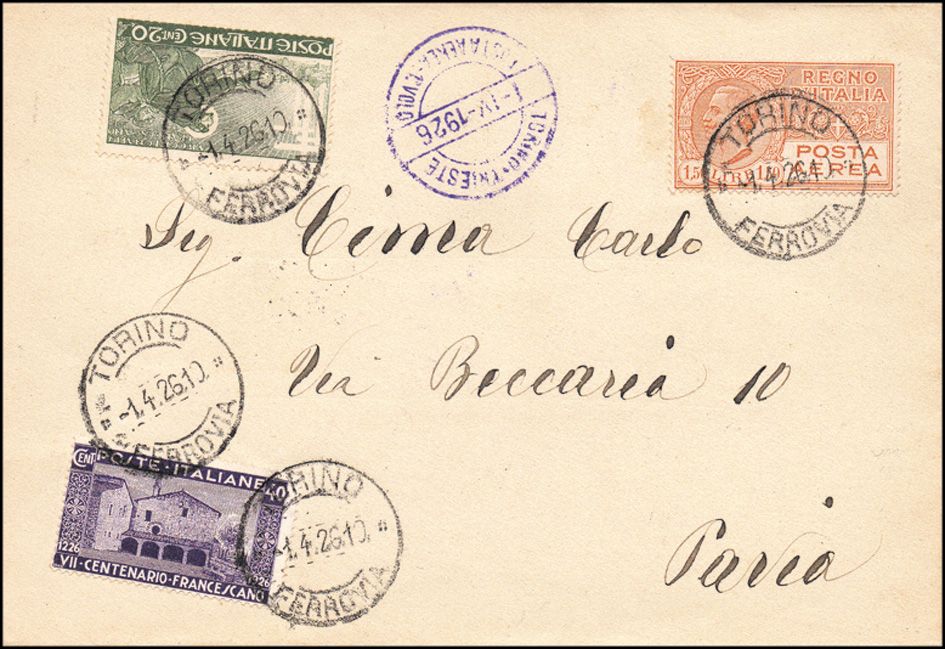 POSTE ITALIANE CENT. 20
TORINO
-1.4.26.10
FERROVIA
TORINO · TRIESTE
1-IV-1926
POSTA AEREA
REGNO
D'ITALIA
POSTA
AEREA
1,50 LIRE 1,50
TORINO
-1.4.26.10
FERROVIA
Sig. Cima Carlo
Via Beccaria 10
Pavia
TORINO
-1.4.26.10
FERROVIA
CENT POSTE·ITALIANE 40
1226 1926
VII·CENTENARIO·FRANCESCANO
TORINO
-1.4.26.10
FERROVIA